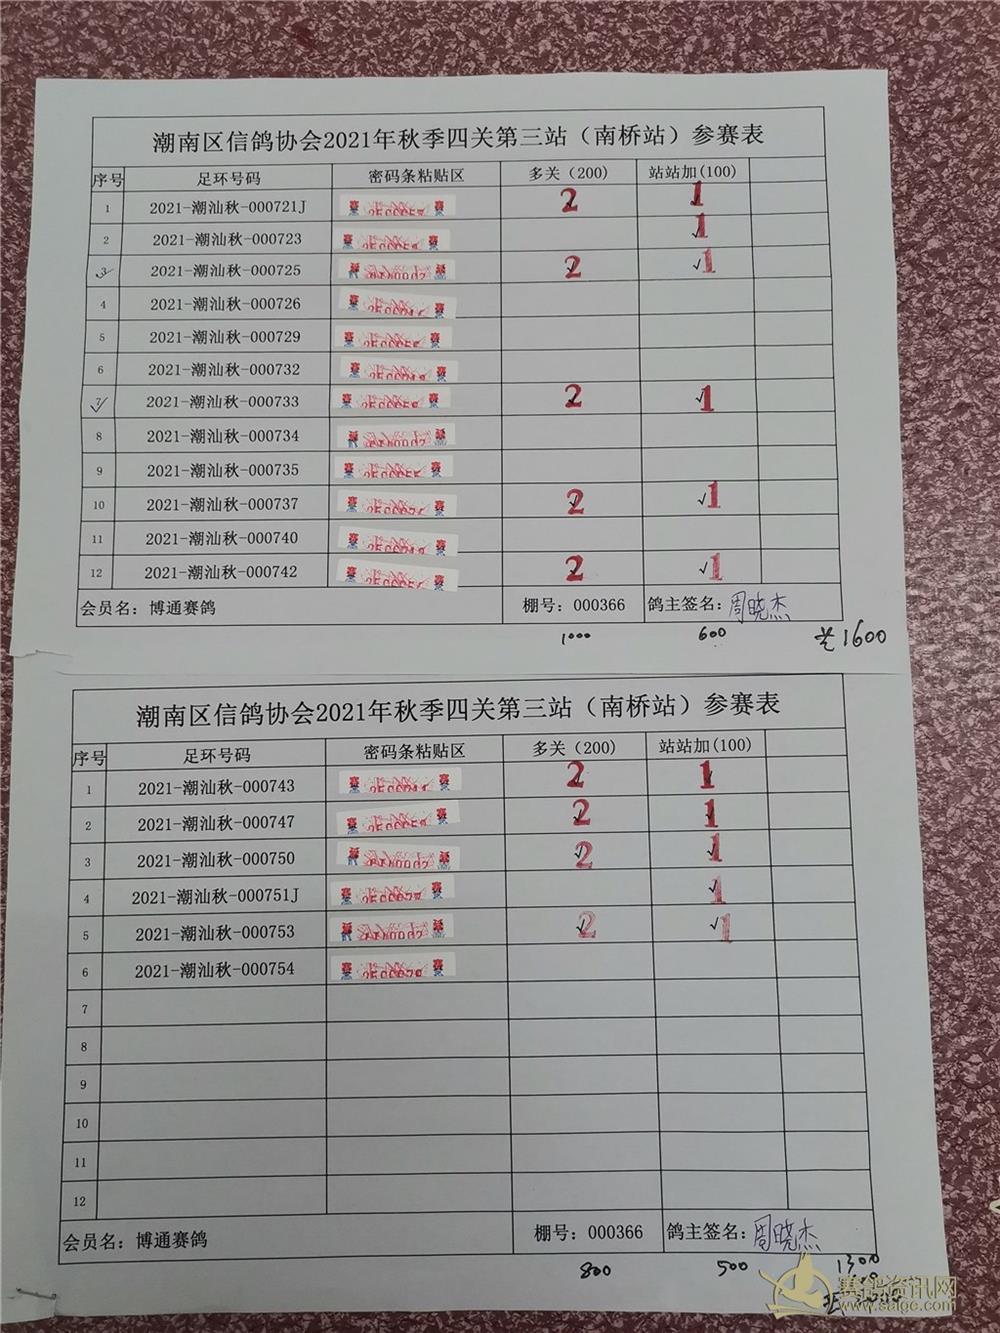 潮南区信鸽协会2021年秋季四关第三站（南桥站）参赛表
序号 足环号码 密码条粘贴区 多关（200） 站站加(100)
1 2021-潮汕秋-000721J 2 1
2 2021-潮汕秋-000723 1
3 2021-潮汕秋-000725 2 1
4 2021-潮汕秋-000726
5 2021-潮汕秋-000729
6 2021-潮汕秋-000732
7 2021-潮汕秋-000733 2 1
8 2021-潮汕秋-000734
9 2021-潮汕秋-000735
10 2021-潮汕秋-000737 2 1
11 2021-潮汕秋-000740
12 2021-潮汕秋-000742 2 1
会员名：博通赛鸽 棚号：000366 鸽主签名：周晓杰
1000 600 1600
潮南区信鸽协会2021年秋季四关第三站（南桥站）参赛表
序号 足环号码 密码条粘贴区 多关（200） 站站加(100)
1 2021-潮汕秋-000743 2 1
2 2021-潮汕秋-000747 2 1
3 2021-潮汕秋-000750 2 1
4 2021-潮汕秋-000751J 1
5 2021-潮汕秋-000753 2 1
6 2021-潮汕秋-000754
7
8
9
10
11
12
会员名：博通赛鸽 棚号：000366 鸽主签名：周晓杰
800 500 1300
赛鸽资讯网
www.saige.com